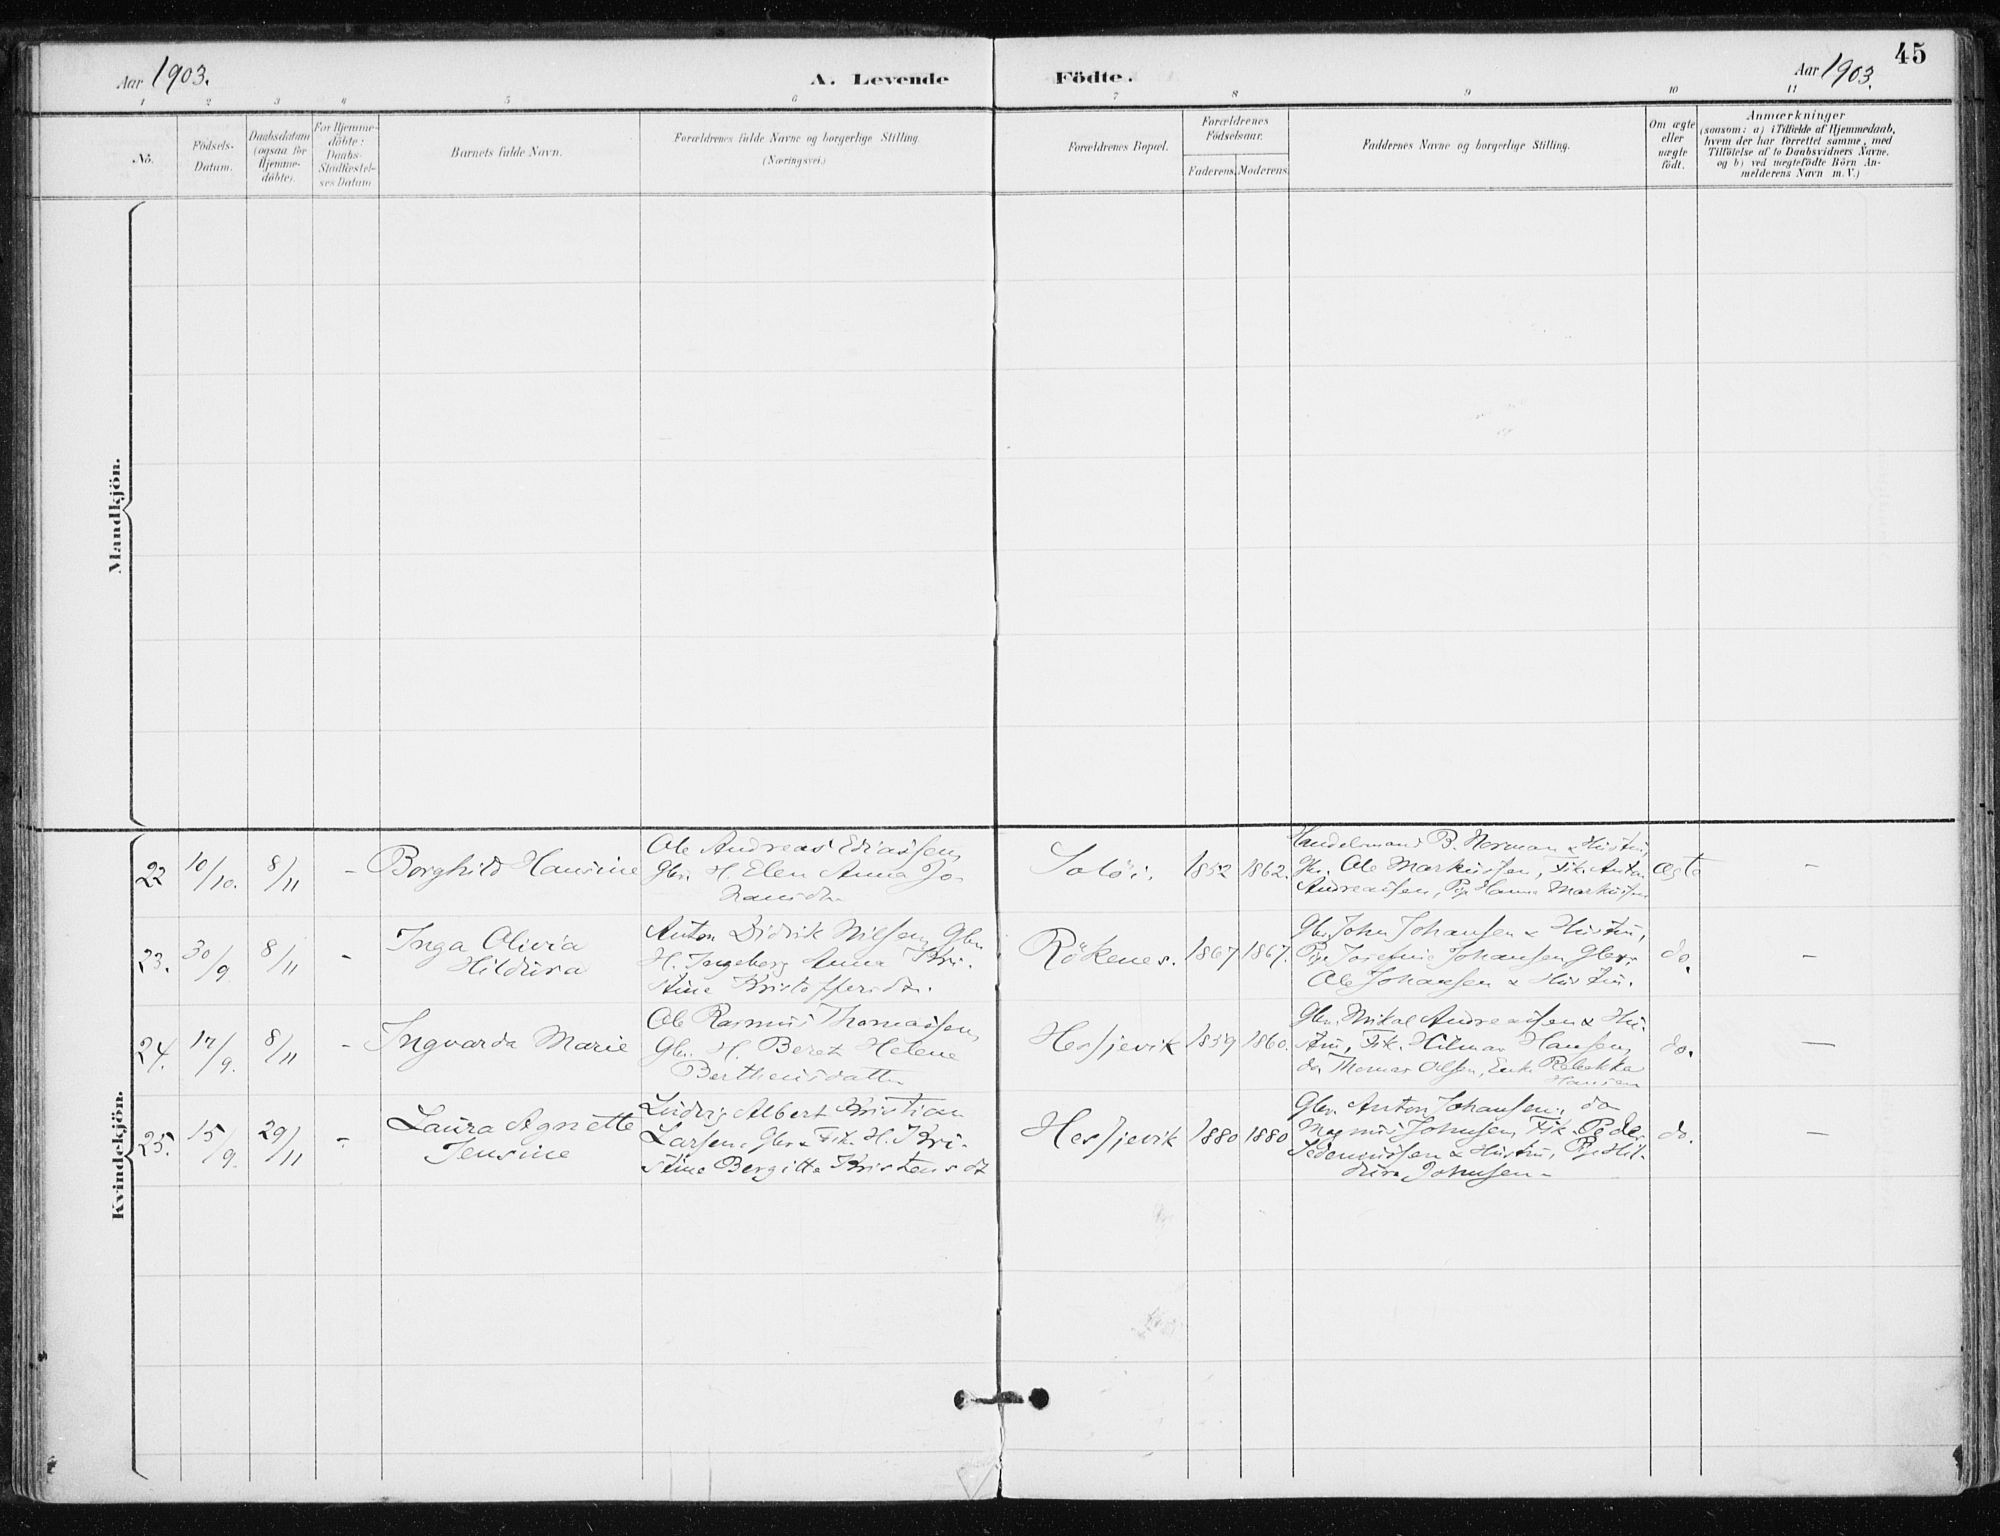 45
Aar 1903.
A. Levende
Födte.
Aar 1903.
1 2 3 4 5 6 7 8 9 10 11
No.
Födsels-
Datum.
Daabsdatum
(ogsaa for
Hjemme-
döbte).
For Hjemme-
döbte:
Daabs-
Stadfæstel-
ses Datum
Barnets fulde Navn.
Forældrenes fulde Navne og borgerlige Stilling
(Næringsvei.)
Forældrenes Bopæl.
Forældrenes
Födselsaar.
Faderens. Moderens.
Faddernes Navne og borgerlige Stilling.
Om ægte
eller
uægte
födt.
Anmærkninger
(saasom: a) i Tilfælde af Hjemmedaab,
hvem der har forrettet samme, med
Tilföielse af to Daabsvidners Navne.
og b) ved uægtefödte Börn An-
melderens Navn m. V.)
Mandkjön.
Kvindekjön.
22 10/10. 8/11 -
Borghild Hansine
Ole Andreas Ediassen,
Gbr. H. Elen Anna Jo-
hansdtr.
Salöi. 1852 1862.
Handelsmand B. Norman & Hustru,
Gbr. Ole Markussen, Fik. Anton
Andreassen, Pige Hanna Markussen
Ægte -
23. 30/9 8/11 -
Inga Olivia
Hildura
Anton Didrik Nilsen, Gbr.
H. Ingeborg Anna Kri-
stine Kristoffersdtr.
Rökenes. 1867 1867.
Gbr. John Johansen & Hustru,
Pige Josefine Johansen, Gbr.
Ole Johansen & Hustru.
do. -
24. 17/9. 8/11 -
Ingvarda Marie
Ole Rasmus Thomassen,
Gbr. H. Beret Helene
Bertheusdatter
Hessjevik 1859 1860.
Gbr. Mikal Andreassen & Hu-
stru, Fik. Hilmar Hansen,
do Thomas Olsen, Enke Rebekka
Hansen
do. -
25. 15/9. 29/11 -
Laura Agnette
Jensine
Ludvig Albert Kristian
Larsen, Gbr & Fik. H. Kri-
stine Bergitte Kristensdt
Hessjevik 1880 1880
Gbr. Anton Johansen, do
Magnus Johnsen, Fik. Peder
Pedersen & Hustru, Pige Hil-
dura Johnsen -
do. -